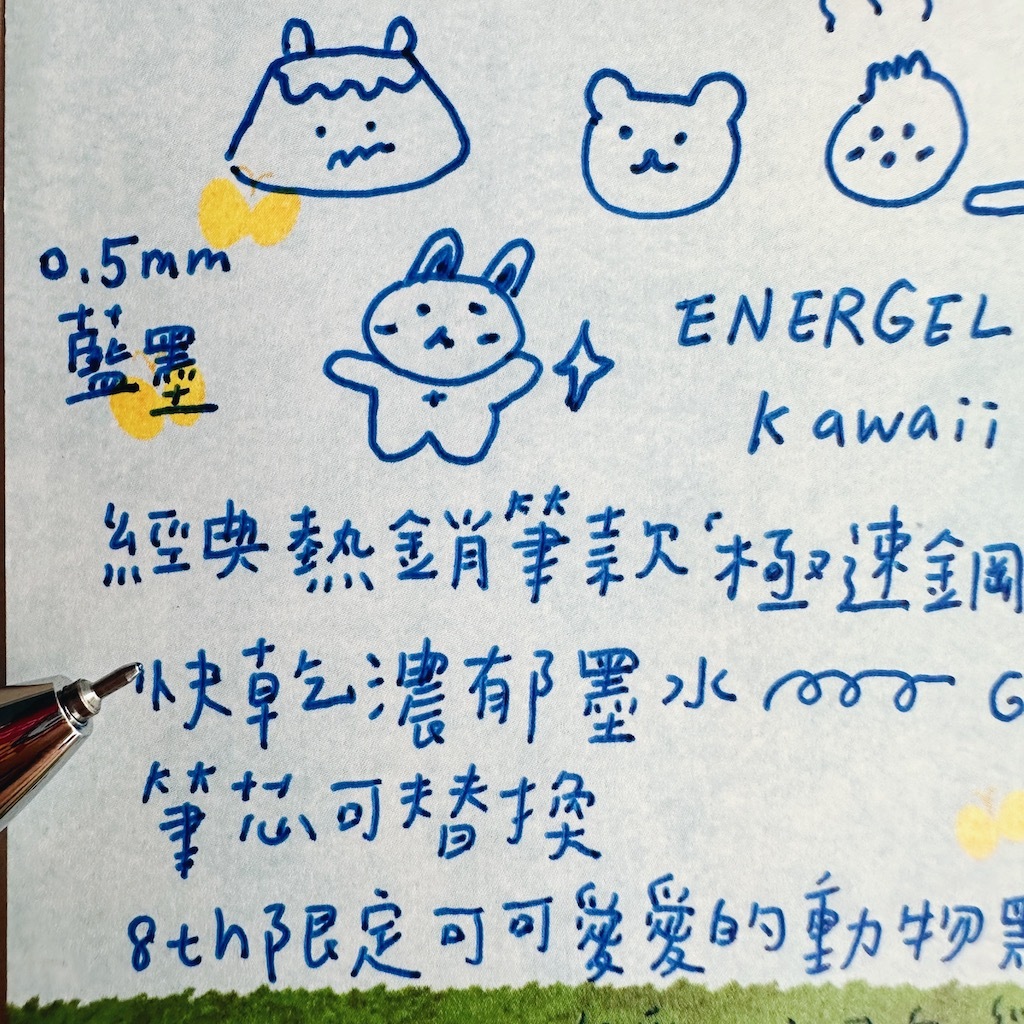 0.5mm
藍墨
ENERGEL
kawaii
經典熱銷筆款「極速鋼
快乾濃郁墨水 G
筆芯可替換
8th限定可可愛愛的動物